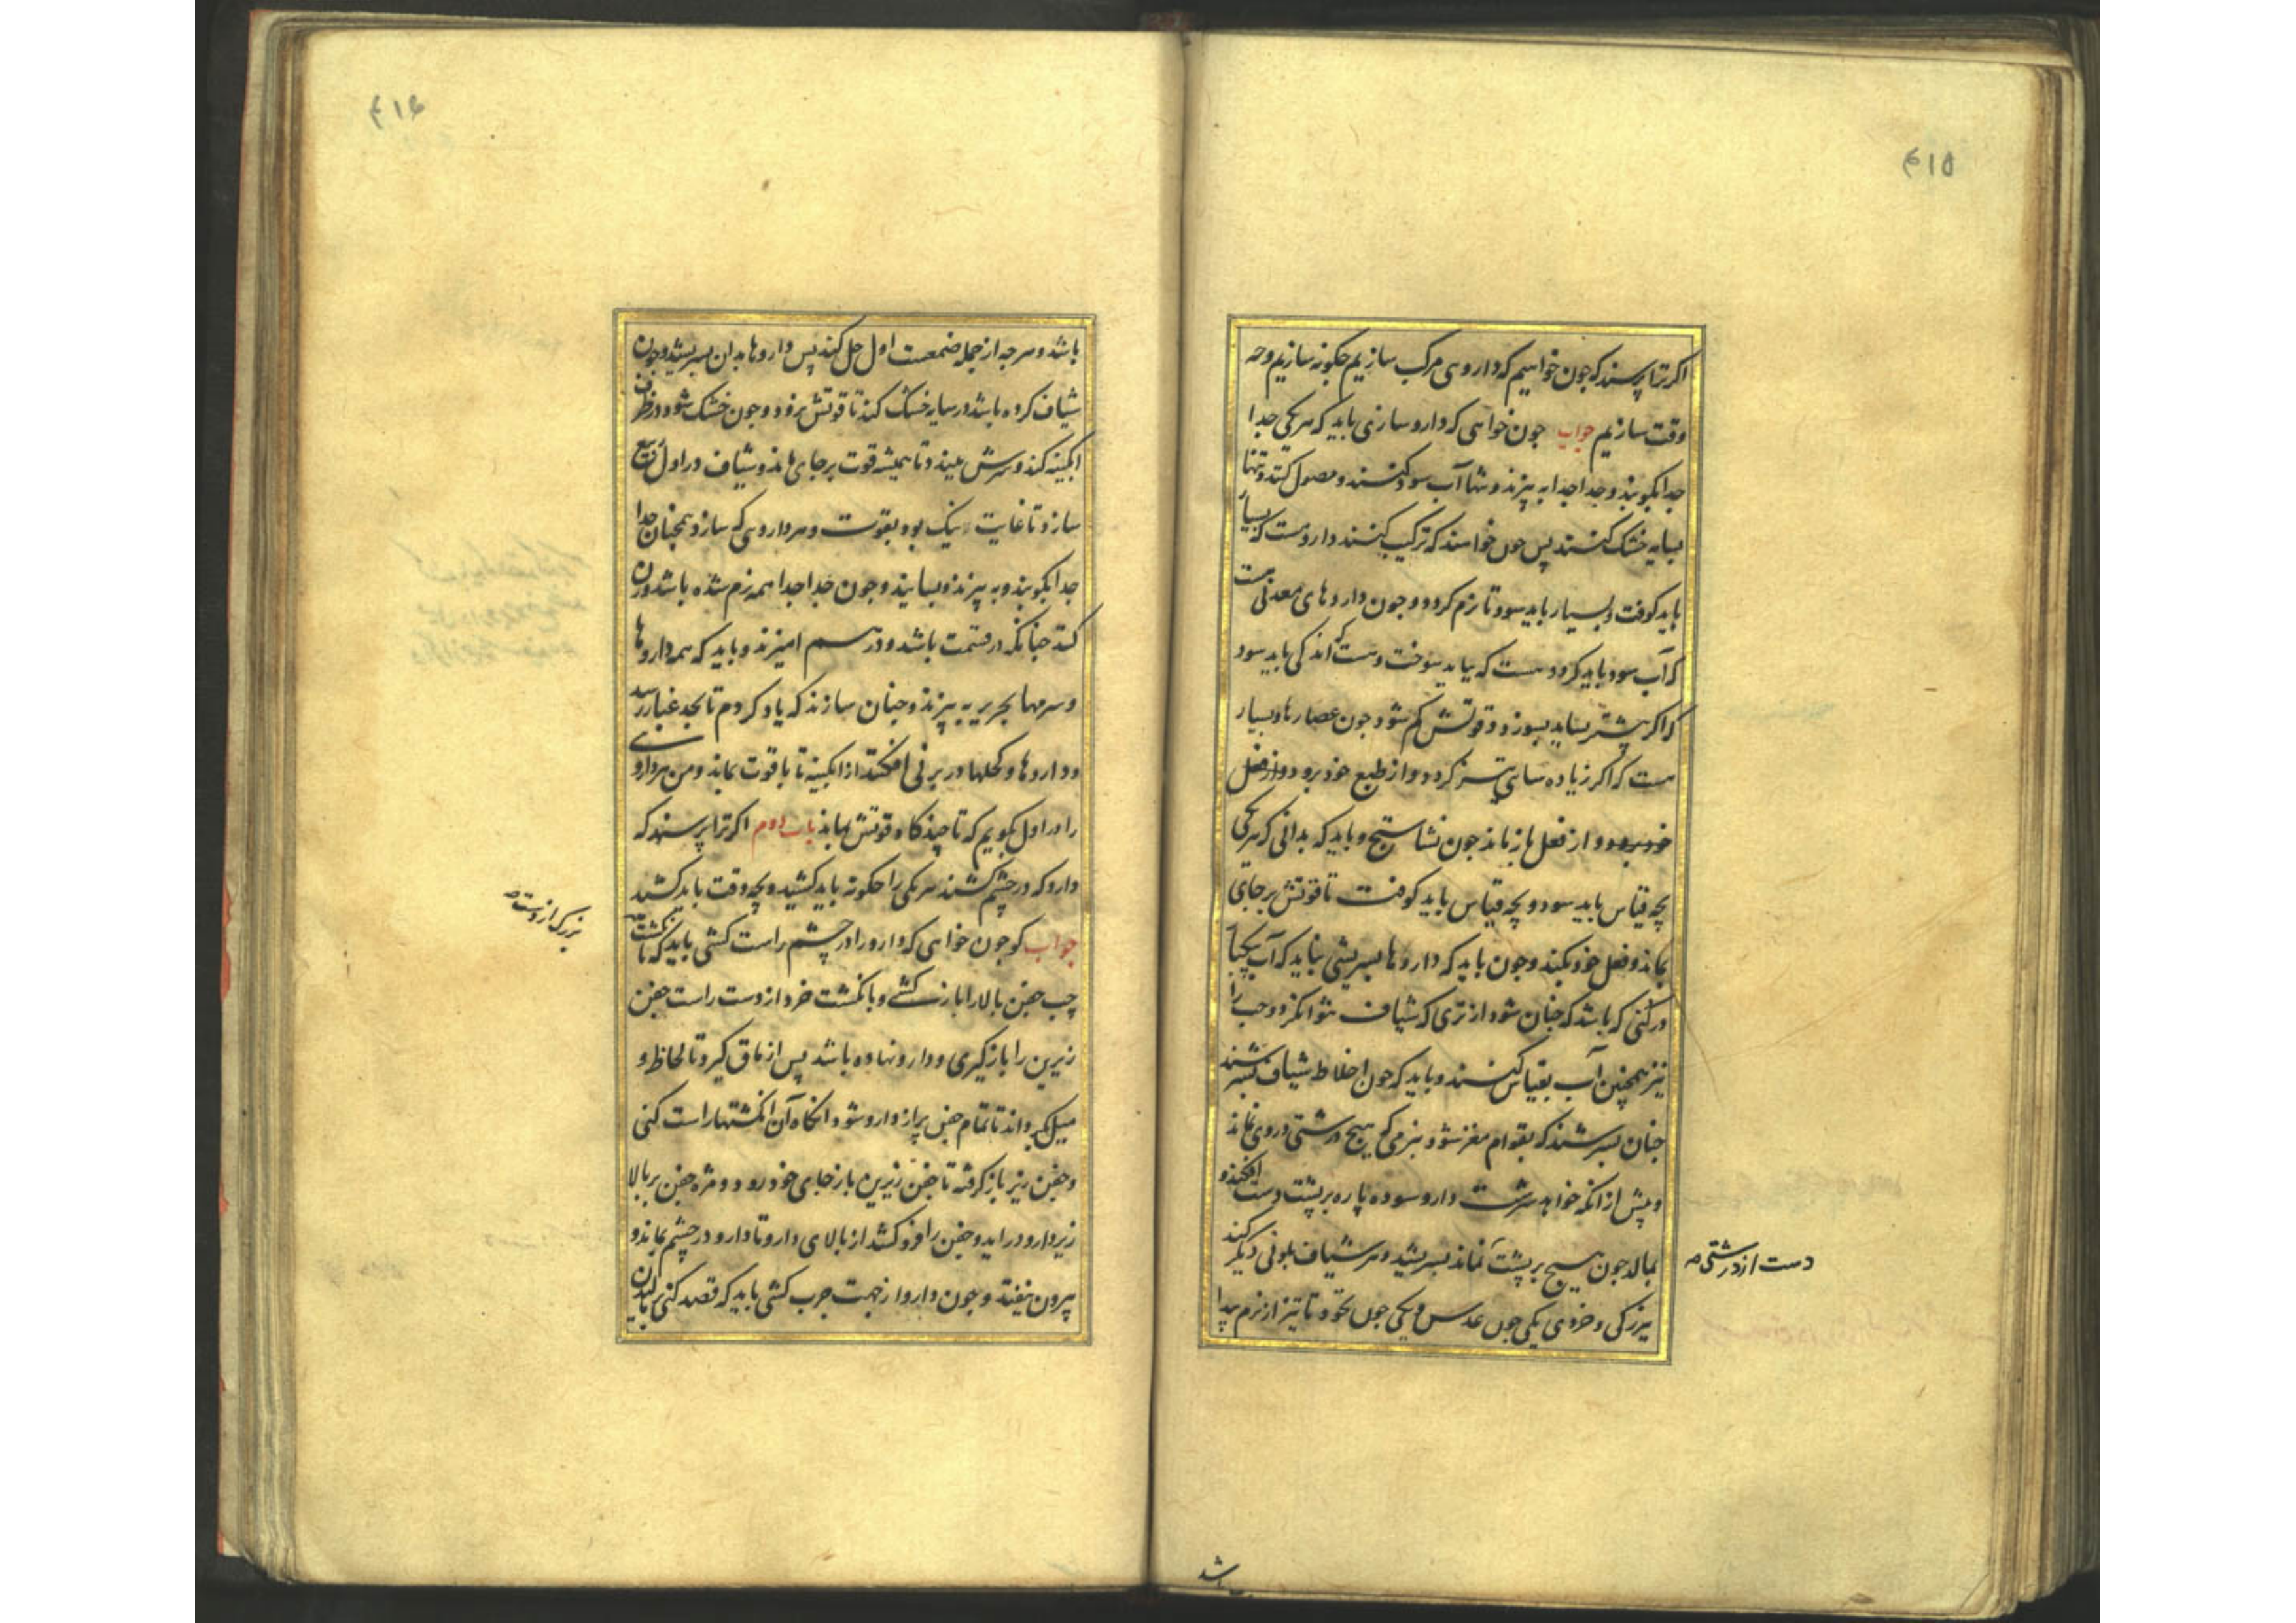 ۴۱۵
اکر ترا پرسند که جون خواهیم که داروی مرکب سازیم جکونه سازیم وجه
وقت سازیم جواب جون خواهی که دارو سازی باید که هر یکی جدا
جدا بکوبند و جدا جدا به بیزند و تنها آب سود کنند و مصول کنند و تنها
بسایه خشک کنند پس جون خواهند که ترکیب کنند دارو هست که بسیار
باید کوفت و بسیار باید سود تا نرم کردد و جون داروهای معدنی هست
که آب سود باید کرد و هست که بباید سوخت و هست که اندکی باید سود
که اکر بیشتر بساید بسوزد و قوتش کم شود جون عصارها و بسیار
هست که اکر زیاده سای تیز کردد و از طبع خود برود و از فعل
خود برود و از فعل باز ماند جون نشاستج و باید که بدانی که هر یکی
بچه قیاس باید سود و بچه قیاس باید کوفت تا قوتش بر جای
بماند و فعل خود بکند و جون باید که داروها بسریشی نباید که آب بیکبار
درکنی که باشد که جنان شود از تری که شیاف نتوان کرد و حب را
نیز همچنین آب بقیاس کنند و باید که جون اخلاط شیاف بسرشند
جنان بسرشند که بقوام مغز شود بنرمی که هیچ درشتی در وی نماند
و پیش از انکه خواهد سرشت دارو سوده پاره بر پشت دست افکند و
بمالد جون هیچ بر پشت نماند بسریشد و هر شیاف بلونی دیکر کند
دست از درشتی صه
بزرکی و خردی یکی جون عدس و یکی جون نخود تا تیز از نرم پیدا
باشد
۴۱۶
باشد و هرجه از جمله ضمغست اول حل کند پس داروها بدان بسریشد و جون
شیاف کرده باشد در سایه خشک کند تا قوتش نرود و جون خشک شود در ظرف
ابکینه کند و سرش ببندد تا همیشه قوت بر جای ماند و شیاف در اول ربیع
سازد تا غایت نیک بود بقوت و هر داروی که سازد همچنان جدا
جدا بکوبند و به بیزند و بسایند و جون جدا جدا همه نرم شده باشد وزن
کند جنانکه در قسمت باشد و در هم امیزند و باید که همه داروها
و سرمها بحریر به بیزند و جنان سازند که یاد کردم تا بحد غبار رسد
و داروها و کحلها در برنی افکند از ابکینه تا با قوت بماند و من هر دارو
را در اول بکویم که تا چند کاه قوتش بماند باب دوم اکر ترا پرسند که
دارو که در چشم کشند هر یکی را جکونه باید کشید و بچه وقت باید کشید
جواب کو جون خواهی که دارو را در چشم راست کشی باید که بانکشت
بزرک از دست صه
چپ جفن بالا را باز کشی و بانکشت خرد از دست راست جفن
زیرین را باز کیری و دارو نهاده باشد پس از ماق کیرد تا لحاظ و
میل بکرداند تا تمام جفن پر از دارو شود و انکاه آن انکشتها راست کنی
و جفن زیر باز کرفته تا جفن زیرین باز جای خود رود و مژه جفن بر بالا
زیر دارو دراید و جفن را فرو کشد از بالای دارو تا دارو در چشم بماند و
بیرون نیفتد و جون دارو از جهت جرب کشی باید که قصد کنی